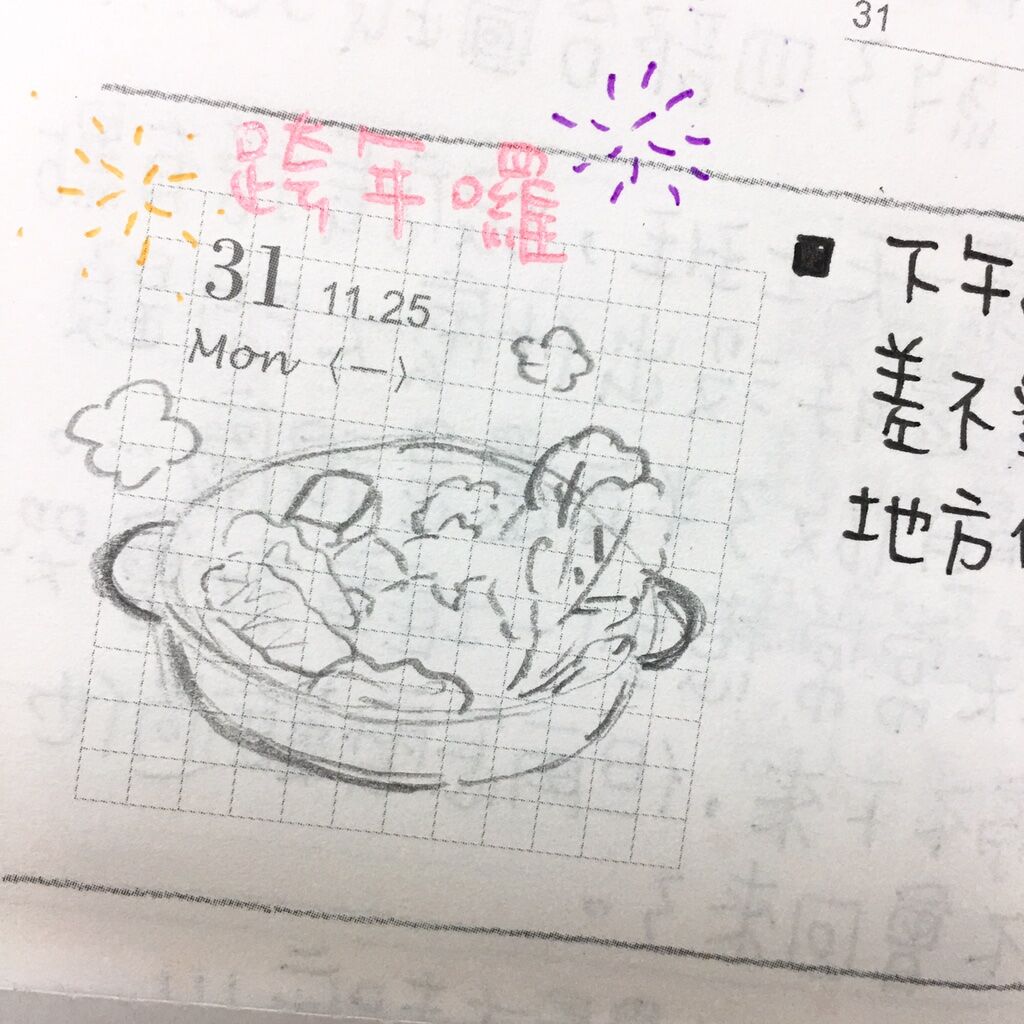 31
跨年囉
31 11.25
Mon〈一〉
■ 下午
差不
地方